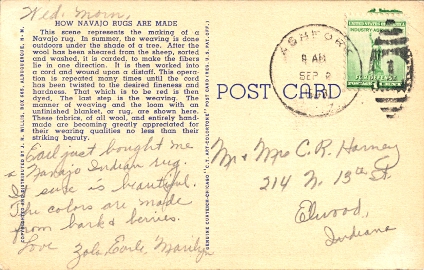 Wed. Morn,
HOW NAVAJO RUGS ARE MADE
This scene represents the making of a
Navajo rug. In summer, the weaving is done
outdoors under the shade of a tree. After the
wool has been sheared from the sheep, sorted
and washed, it is carded, to make the fibers
lie in one direction. It is then worked into
a cord and wound upon a distaff. This operation
is repeated many times until the cord
has been twisted to the desired fineness and
hardness. That which is to be red is then
dyed. The last step is the weaving. The
manner of weaving and the loom with an
unfinished blanket, or rug, are shown here.
These fabrics, of all wool, and entirely handmade
are becoming greatly appreciated for
their wearing qualities no less than their
striking beauty.
Earl just bought me
a Navajo Indian rug
It sure is beautiful.
The colors are made
from bark & berries.
Love Zola, Earle, Marilyn
COPYRIGHTED AND DISTRIBUTED BY J. R. WILLIS, BOX 665, ALBUQUERQUE, N. M.
GENUINE CURTEICH-CHICAGO "C. T. ART-COLORTONE" POST CARD (REG. U. S. PAT. OFF.)
ASHFORK
8 AM
SEP 2
UNITED STATES OF AMERICA
INDUSTRY AGRICULTURE
FOR DEFENSE
POST CARD
Mr & Mrs C. R. Harney
214 N. 13th St.
Elwood,
Indiana